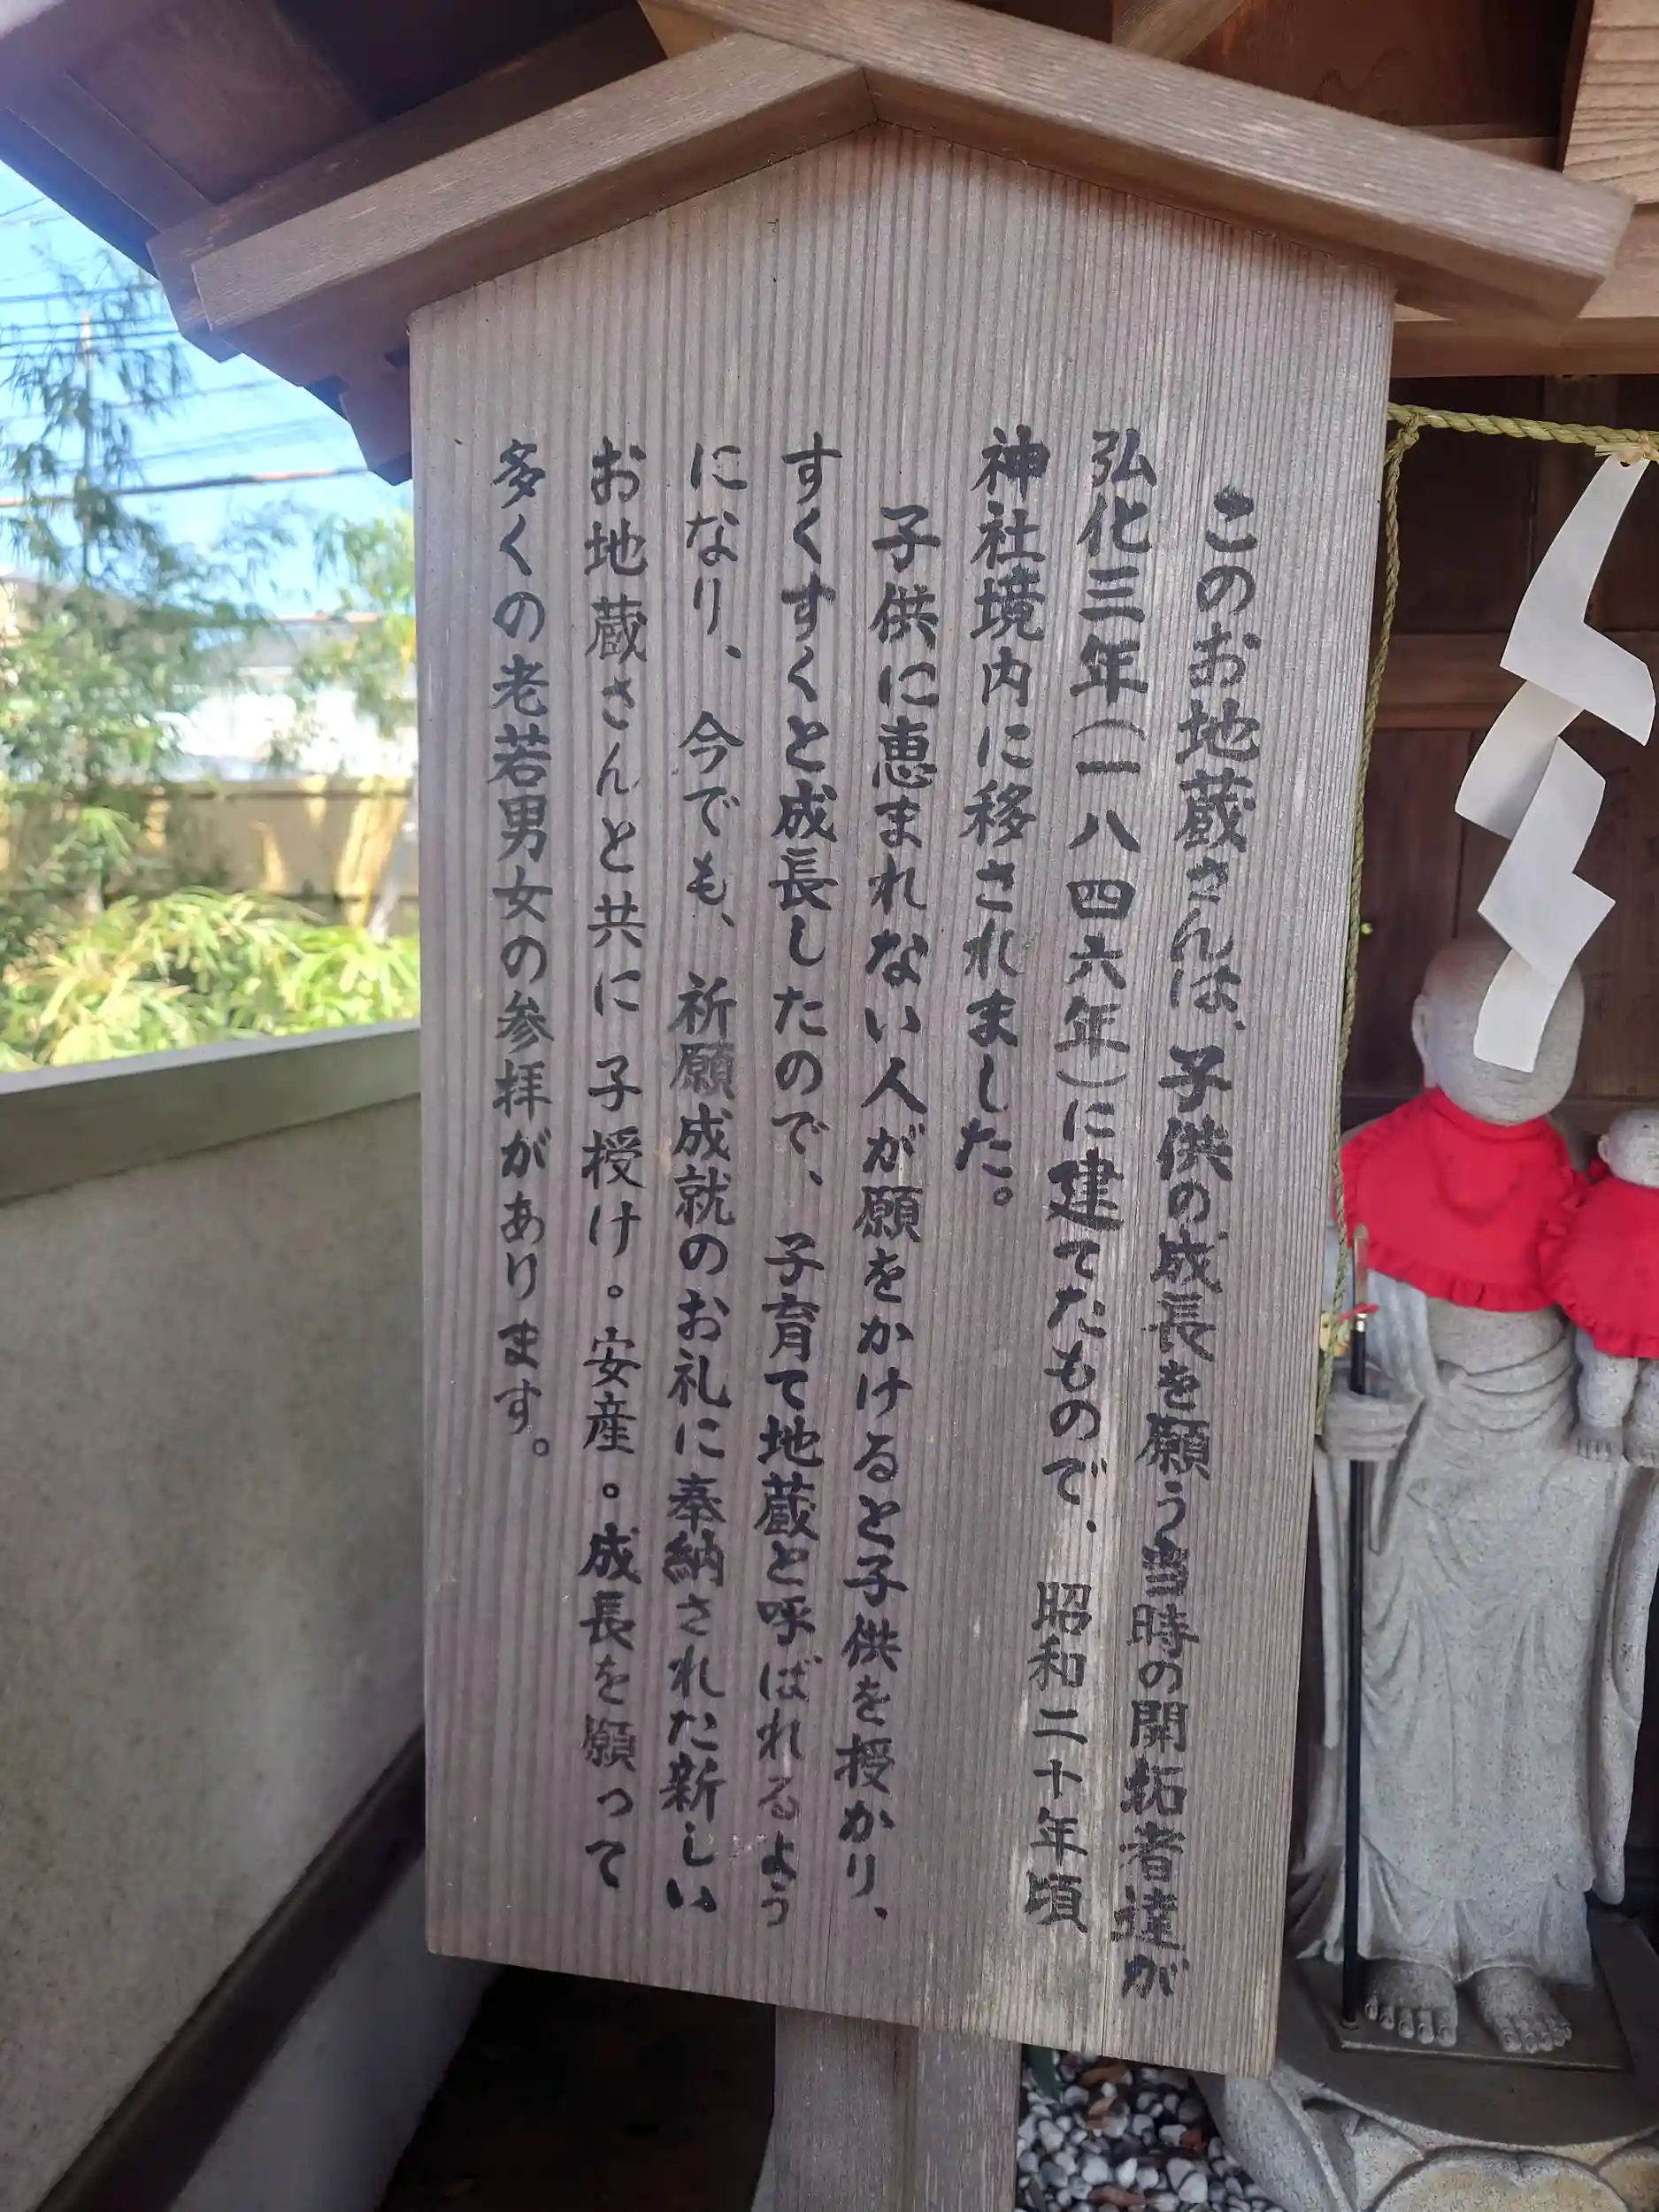 このお地蔵さんは、子供の成長を願う当時の開拓者達が
弘化三年(一八四六年)に建てたもので、昭和二十年頃
神社境内に移されました。
子供に恵まれない人が願をかけると子供を授かり、
すくすくと成長したので、子育て地蔵と呼ばれるよう
になり、今でも、祈願成就のお礼に奉納された新しい
お地蔵さんと共に子授け。安産。成長を願って
多くの老若男女の参拝があります。